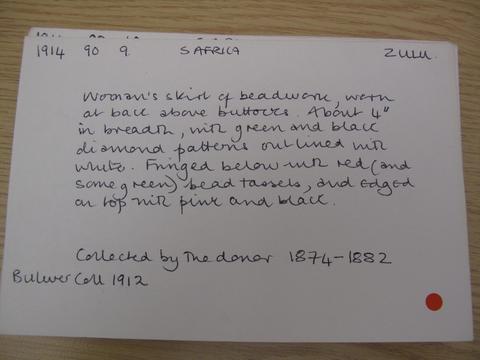 1914 90 9. S AFRICA ZULU.
Woman's skirt of beadwork, worn
at back above buttocks. About 4"
in breadth, with green and black
diamond patterns outlined with
white. Fringed below with red (and
some green) bead tassels, and edged
on top with pink and black.
Collected by the donor 1874-1882
Bulwer Coll 1912